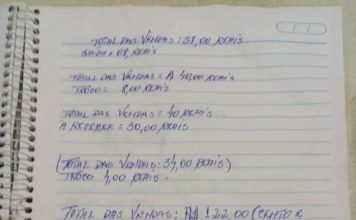 TOTAL DAS VENDAS: 51,00 REAIS
TOTAL DAS VENDAS = R$ 40,00 REAIS
TROCO = 8,00 REAIS
TOTAL DAS VENDAS = 40 REAIS
A RECEBER = 50,00 REAIS
(TOTAL DAS VENDAS: 54,00 REAIS)
TROCO 4,00 REAIS -
TOTAL DAS VENDAS: R$ 122,00 (CENTO E